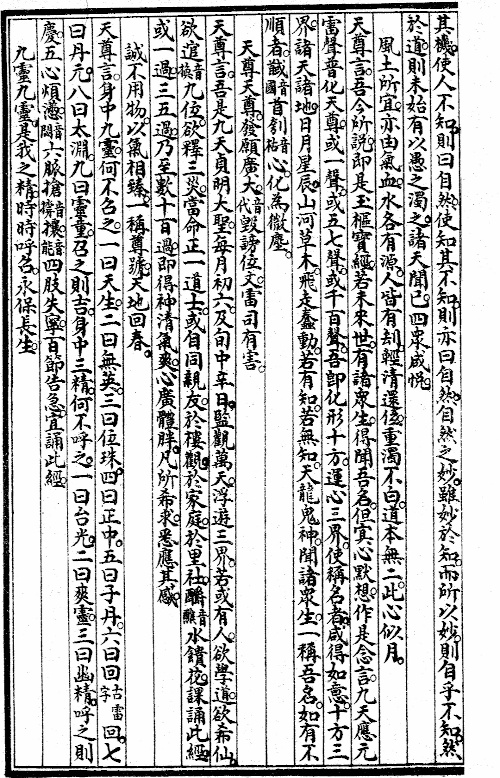 其機使人不知則曰自然使知其不知則亦曰自然自然之妙雖妙於知而所以妙則自乎不知然
於道則未始有以愚之濁之諸天聞已四衆咸悅
風土所宜亦由氣血水各有源人皆有刦輕清還俊重濁不白道本無二此心似月
天尊言吾今所說即是玉樞寶經若未來世有諸衆生得聞吾名但冥心默想作是念言九天應元
雷聲普化天尊或一聲或五七聲或千百聲吾卽化形十方運心三界使稱名者咸得如意十方三
界諸天諸地日月星辰山河草木飛走蠢動若有知若無知天龍鬼神聞諸衆生一稱吾名如有不
順者馘音國首刳音祜心化為微塵
天尊天尊發願廣大代音毀謗位文書司有害
天尊言吾是九天貞明大聖每月初六及旬中辛日監觀萬天浮遊三界若或有人欲學道欲希仙
欲逭音換九位欲釋三災當命正一道士或自同親友於樓觀於家庭於里社酹音醮水饋花課誦此經
或一過三五過乃至數十百過即得神清氣爽心廣體胖凡所希求悉應其感
誠不用物以氣相臻一稱尊號天地回春
天尊言身中九靈何不召之一曰天生二曰無英三曰位珠四曰正中五曰子丹六曰回古雷字回七
曰丹元八曰太淵九曰靈童召之則吉身中三精何不呼之一曰台光二曰爽靈三曰幽精呼之則
慶五心煩懣音悶六脈搶音撐攘音能四肢失寧百節告急宜誦此經
九靈九靈是我之精時時呼名永保長生